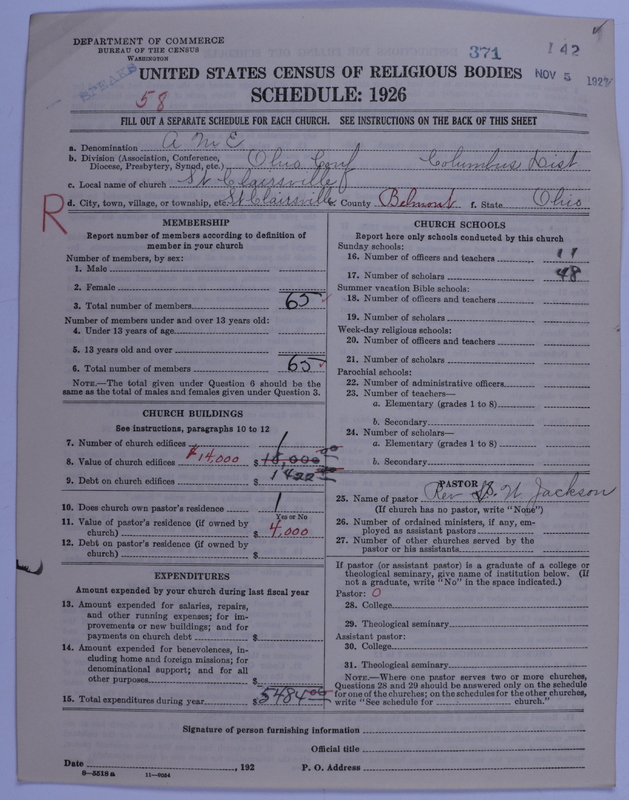 DEPARTMENT OF COMMERCE
BUREAU OF THE CENSUS
WASHINGTON
371
142
NOV 5 1927
UNITED STATES CENSUS OF RELIGIOUS BODIES
58
SCHEDULE: 1926
FILL OUT A SEPARATE SCHEDULE FOR EACH CHURCH. SEE INSTRUCTIONS ON THE BACK OF THIS SHEET
a. Denomination A M E
b. Division (Association, Conference, Diocese, Presbytery, Synod, etc.) Ohio Conf Columbus Dist
c. Local name of church St Clairsville
R
d. City, town, village, or township, etc. St Clairsville e. County Belmont f. State Ohio
MEMBERSHIP
Report number of members according to definition of
member in your church
Number of members, by sex:
1. Male
2. Female
3. Total number of members 65
Number of members under and over 13 years old:
4. Under 13 years of age
5. 13 years old and over
6. Total number of members 65
NOTE.—The total given under Question 6 should be the
same as the total of males and females given under Question 3.
CHURCH BUILDINGS
See instructions, paragraphs 10 to 12
7. Number of church edifices 1
8. Value of church edifices $14,000 $ 18,000 00
9. Debt on church edifices $ 1422 00
10. Does church own pastor's residence 1
Yes or No
11. Value of pastor's residence (if owned by
church) $ 4,000
12. Debt on pastor's residence (if owned by
church) $
EXPENDITURES
Amount expended by your church during last fiscal year
13. Amount expended for salaries, repairs,
and other running expenses; for im-
provements or new buildings; and for
payments on church debt $
14. Amount expended for benevolences, in-
cluding home and foreign missions; for
denominational support; and for all
other purposes $
15. Total expenditures during year $ 5484 00
CHURCH SCHOOLS
Report here only schools conducted by this church
Sunday schools:
16. Number of officers and teachers 11
17. Number of scholars 48
Summer vacation Bible schools:
18. Number of officers and teachers
19. Number of scholars
Week-day religious schools:
20. Number of officers and teachers
21. Number of scholars
Parochial schools:
22. Number of administrative officers
23. Number of teachers—
a. Elementary (grades 1 to 8)
b. Secondary
24. Number of scholars—
a. Elementary (grades 1 to 8)
b. Secondary
PASTOR
25. Name of pastor Rev Jackson
(If church has no pastor, write "None")
26. Number of ordained ministers, if any, em-
ployed as assistant pastors
27. Number of other churches served by the
pastor or his assistants
If pastor (or assistant pastor) is a graduate of a college or
theological seminary, give name of institution below. (If
not a graduate, write "No" in the space indicated.)
Pastor: O
28. College
29. Theological seminary
Assistant pastor:
30. College
31. Theological seminary
NOTE.—Where one pastor serves two or more churches,
Questions 28 and 29 should be answered only on the schedule
for one of the churches; on the schedules for the other churches,
write "See schedule for church."
Signature of person furnishing information
Official title
Date , 192 P. O. Address
8-5518 a 11-9054